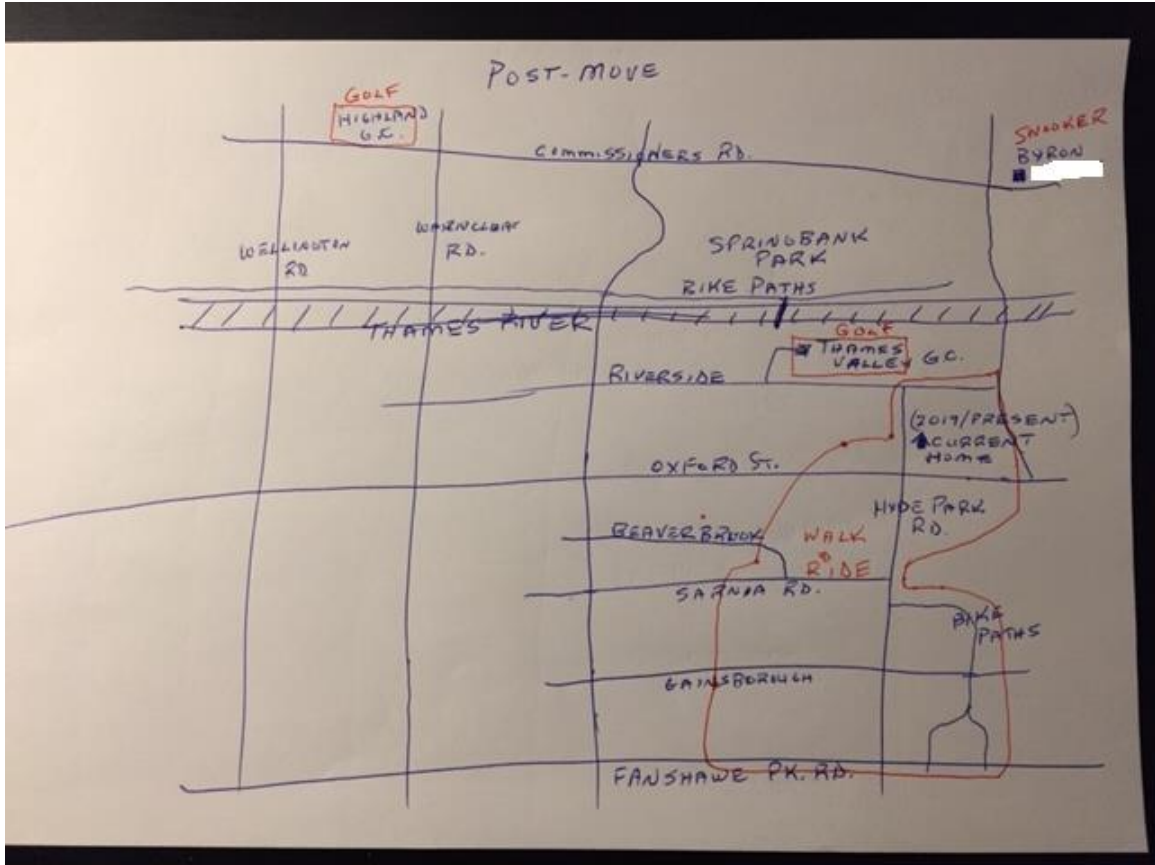 POST-MOVE
GOLF
HIGHLAND
G.C.
COMMISSIONERS RD.
SNOOKER
BYRON
WELLINGTON
RD
WARNCLIFF
RD.
SPRINGBANK
PARK
BIKE PATHS
THAMES RIVER
GOLF
THAMES
VALLEY G.C.
RIVERSIDE
(2019/PRESENT)
CURRENT
HOME
OXFORD ST.
HYDE PARK
RD.
BEAVERBROOK
WALK
RIDE
SARNIA RD.
BIKE
PATHS
GAINSBOROUGH
FANSHAWE PK. RD.